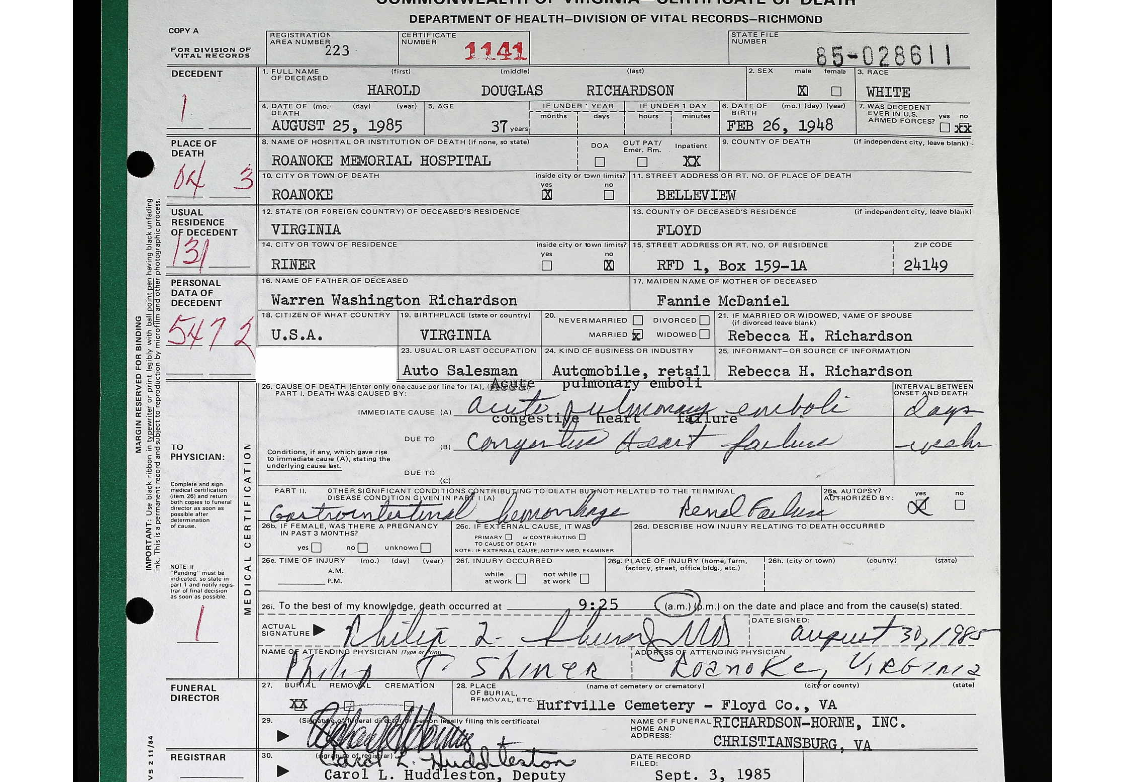 COMMONWEALTH OF VIRGINIA – CERTIFICATE OF DEATH
DEPARTMENT OF HEALTH—DIVISION OF VITAL RECORDS—RICHMOND
COPY A
FOR DIVISION OF VITAL RECORDS
REGISTRATION AREA NUMBER 223
CERTIFICATE NUMBER 1141
STATE FILE NUMBER 85-028611
DECEDENT
1
1. FULL NAME OF DECEASED (first) (middle) (last)
HAROLD DOUGLAS RICHARDSON
2. SEX male X female
3. RACE WHITE
4. DATE OF DEATH (mo.) (day) (year)
AUGUST 25, 1985
5. AGE 37 years
IF UNDER 1 YEAR months days
IF UNDER 1 DAY hours minutes
6. DATE OF BIRTH (mo.) (day) (year)
FEB 26, 1948
7. WAS DECEDENT EVER IN U.S. ARMED FORCES? yes no XX
PLACE OF DEATH
64 3
8. NAME OF HOSPITAL OR INSTITUTION OF DEATH (if none, so state)
ROANOKE MEMORIAL HOSPITAL
DOA OUT PAT/ Emer. Rm. Inpatient XX
9. COUNTY OF DEATH (if independent city, leave blank)
10. CITY OR TOWN OF DEATH
ROANOKE
inside city or town limits? yes X no
11. STREET ADDRESS OR RT. NO. OF PLACE OF DEATH
BELLEVIEW
USUAL RESIDENCE OF DECEDENT
131
12. STATE (OR FOREIGN COUNTRY) OF DECEASED'S RESIDENCE
VIRGINIA
13. COUNTY OF DECEASED'S RESIDENCE (if independent city, leave blank)
FLOYD
14. CITY OR TOWN OF RESIDENCE
RINER
inside city or town limits? yes no X
15. STREET ADDRESS OR RT. NO. OF RESIDENCE
RFD 1, Box 159-1A
ZIP CODE 24149
PERSONAL DATA OF DECEDENT
5472
16. NAME OF FATHER OF DECEASED
Warren Washington Richardson
17. MAIDEN NAME OF MOTHER OF DECEASED
Fannie McDaniel
18. CITIZEN OF WHAT COUNTRY
U.S.A.
19. BIRTHPLACE (state or country)
VIRGINIA
20. NEVER MARRIED DIVORCED
MARRIED X WIDOWED
21. IF MARRIED OR WIDOWED, NAME OF SPOUSE (if divorced leave blank)
Rebecca H. Richardson
23. USUAL OR LAST OCCUPATION
Auto Salesman
24. KIND OF BUSINESS OR INDUSTRY
Automobile, retail
25. INFORMANT—OR SOURCE OF INFORMATION
Rebecca H. Richardson
MARGIN RESERVED FOR BINDING
IMPORTANT: Use black ribbon in typewriter or print legibly with ball point pen having black unfading ink. This is a permanent record and subject to reproduction by microfilm and other photographic process.
MEDICAL CERTIFICATION
TO PHYSICIAN:
Complete and sign medical certification (item 26) and return both copies to funeral director as soon as possible after determination of cause.
NOTE: If "Pending" must be indicated, so state in part 1 and notify registrar of final decision as soon as possible.
1
26. CAUSE OF DEATH (Enter only one cause per line for (A),
PART I. DEATH WAS CAUSED BY:
INTERVAL BETWEEN ONSET AND DEATH
Acute pulmonary emboli
IMMEDIATE CAUSE (A) acute pulmonary emboli days
congestive heart failure
DUE TO (B) Congestive Heart failure weeks
Conditions, if any, which gave rise to immediate cause (A), stating the underlying cause last.
DUE TO (C)
PART II. OTHER SIGNIFICANT CONDITIONS CONTRIBUTING TO DEATH BUT NOT RELATED TO THE TERMINAL DISEASE CONDITION GIVEN IN PART I (A)
Gastrointestinal hemorrhage Renal Failure
26a. AUTOPSY? AUTHORIZED BY: yes X no
26b. IF FEMALE, WAS THERE A PREGNANCY IN PAST 3 MONTHS?
yes no unknown
26c. IF EXTERNAL CAUSE, IT WAS
PRIMARY or CONTRIBUTING TO CAUSE OF DEATH
NOTE: IF EXTERNAL CAUSE, NOTIFY MED. EXAMINER
26d. DESCRIBE HOW INJURY RELATING TO DEATH OCCURRED
26e. TIME OF INJURY (mo.) (day) (year)
A.M.
P.M.
26f. INJURY OCCURRED
while at work not while at work
26g. PLACE OF INJURY (home, farm, factory, street, office bldg., etc.)
26h. (city or town) (county) (state)
26i. To the best of my knowledge, death occurred at 9:25 (a.m.) (p.m.) on the date and place and from the cause(s) stated.
ACTUAL SIGNATURE Philip T. Shiner MD
DATE SIGNED: august 30, 1985
NAME OF ATTENDING PHYSICIAN (type or print)
Philip T SHINER
ADDRESS OF ATTENDING PHYSICIAN
ROANOKE, VIRGINIA
FUNERAL DIRECTOR
27. BURIAL REMOVAL CREMATION
XX
28. PLACE OF BURIAL, REMOVAL, ETC. (name of cemetery or crematory) (city or county) (state)
Huffville Cemetery - Floyd Co., VA
29. (Signature of funeral director or person legally filing this certificate)
NAME OF FUNERAL HOME AND ADDRESS:
RICHARDSON-HORNE, INC.
CHRISTIANSBURG, VA
REGISTRAR
30. (signature of registrar)
Carol L. Huddleston
Carol L. Huddleston, Deputy
DATE RECORD FILED:
Sept. 3, 1985
VS 2 11/84